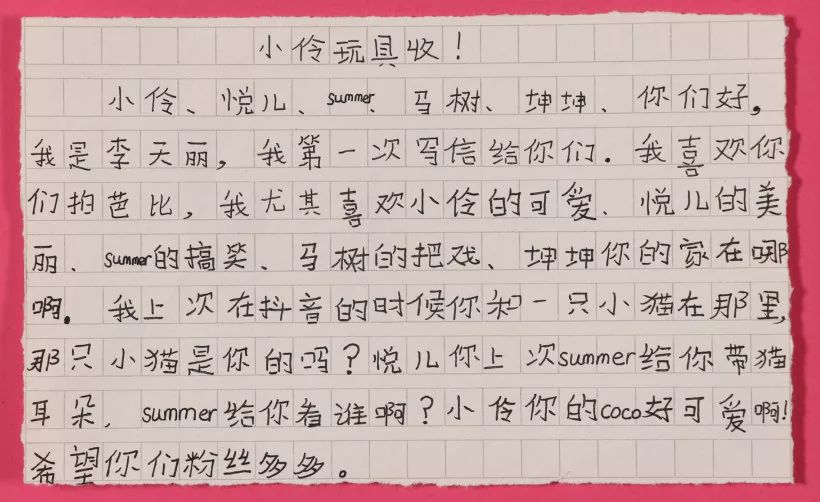 小伶玩具收！
小伶、悦儿、summer、马树、坤坤、你们好，
我是李天丽，我第一次写信给你们．我喜欢你
们拍芭比，我尤其喜欢小伶的可爱、悦儿的美
丽、summer的搞笑、马树的把戏、坤坤你的家在哪
啊。我上次在抖音的时候你和一只小猫在那里，
那只小猫是你的吗？悦儿你上次summer给你带猫
耳朵，summer给你看谁啊？小伶你的coco好可爱啊！
希望你们粉丝多多。